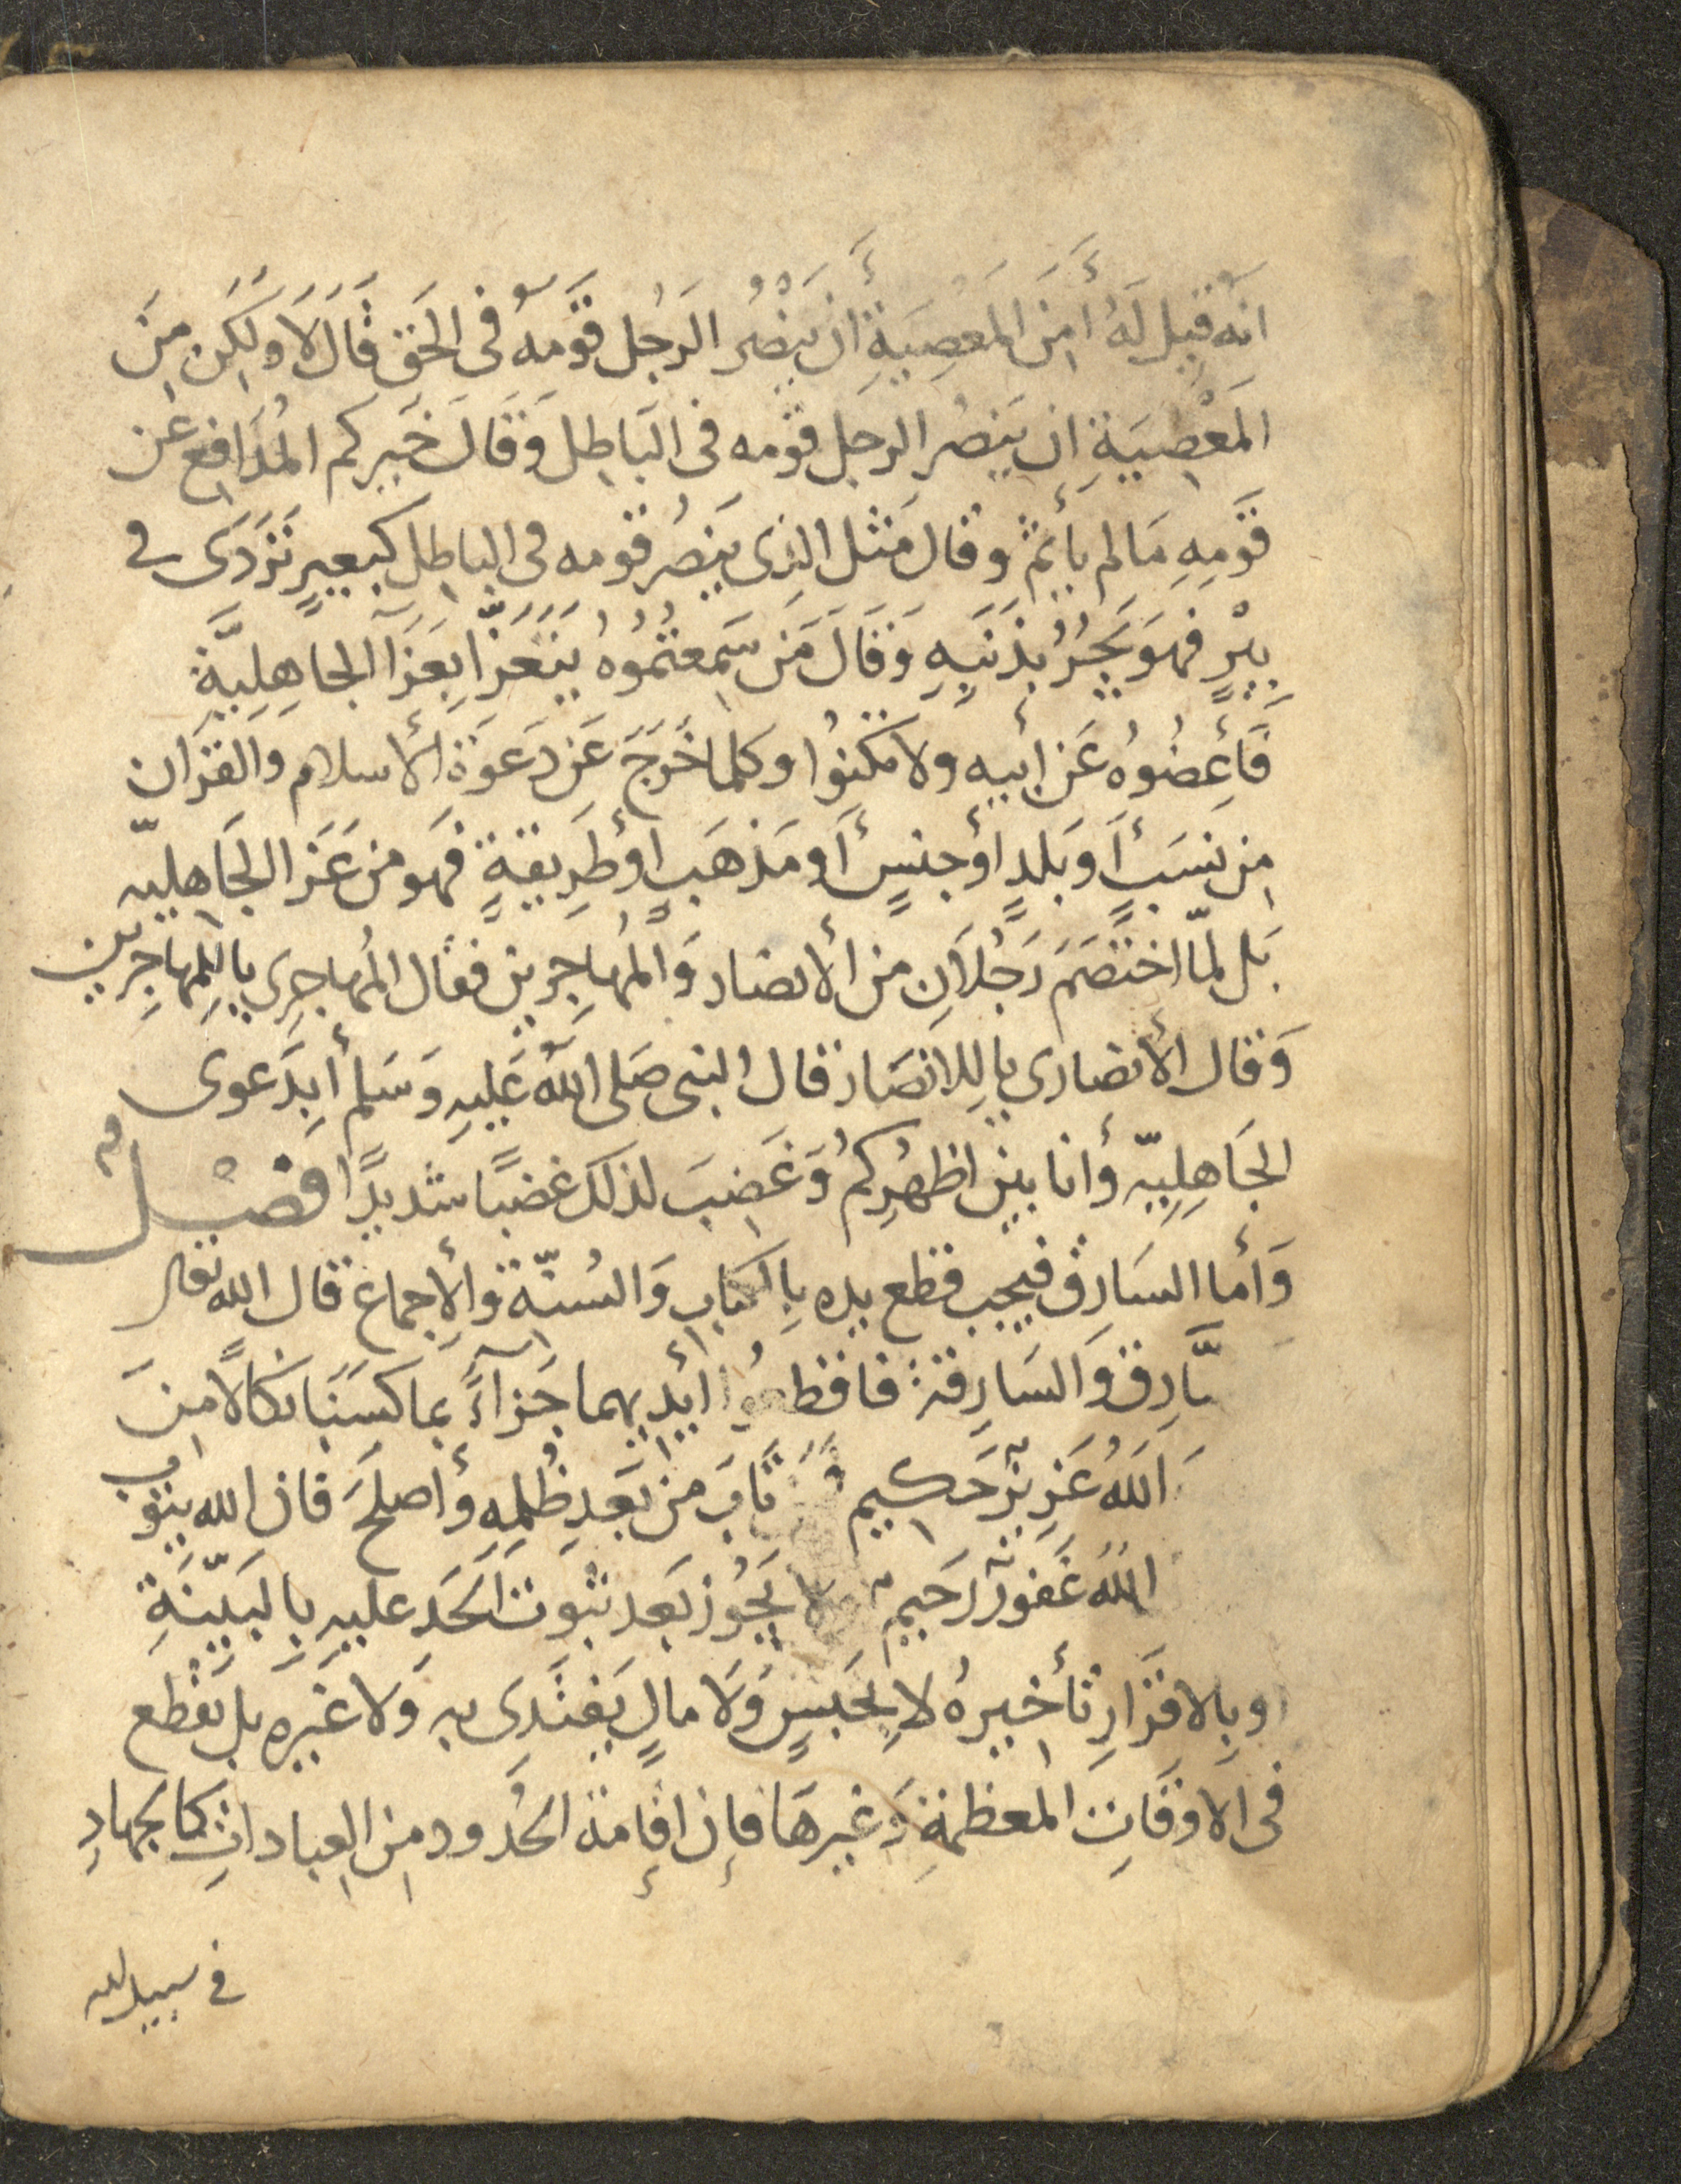 انه قيل له أمن المعصية أن ينصر الرجل قومه فى الحق قال لا ولكن من
المعصية ان ينصر الرجل قومه فى الباطل وقال خيركم المدافع عن
قومه مالم يأثم وقال مثل الذى ينصر قومه فى الباطل كبعير تردى فى
بير فهو يجر بذنبه وقال من سمعتموه يتعزا بعزآ الجاهلية
فأعضوه عن أبيه ولا تكنوا وكلما خرج عن دعوة الأسلام والقران
من نسب أو بلد أو جنس أو مذهب أو طريقة فهو من عزا الجاهلية
بل لما اختصم رجلان من الأنصار والمهاجرين فقال المهاجرى ياللمهاجرين
وقال الأنصارى ياللانصار قال النبى صلى الله عليه وسلم أبدعوى
الجاهلية وأنا بين اظهركم وغضب لذلك غضبا شديدا فصل
وأما السارق فيجب قطع يده بالكتاب والسنة والإجماع قال الله تعالى
ـارق والسارقة فاقطعوا أيديهما جزآء بما كسبا نكالا من
الله عزيز حكيم تاب من بعد ظلمه وأصلح فان الله يتوب
الله غفور رحيم لا يجوز بعد ثبوت الحد عليه بالبينة
او بالاقرار تأخيره لا بحبس ولا مال يفتدى به ولا غيره بل تقطع
فى الاوقات المعظمة وغيرها فإن إقامة الحدود من العبادات كالجهاد
في سبيل الله